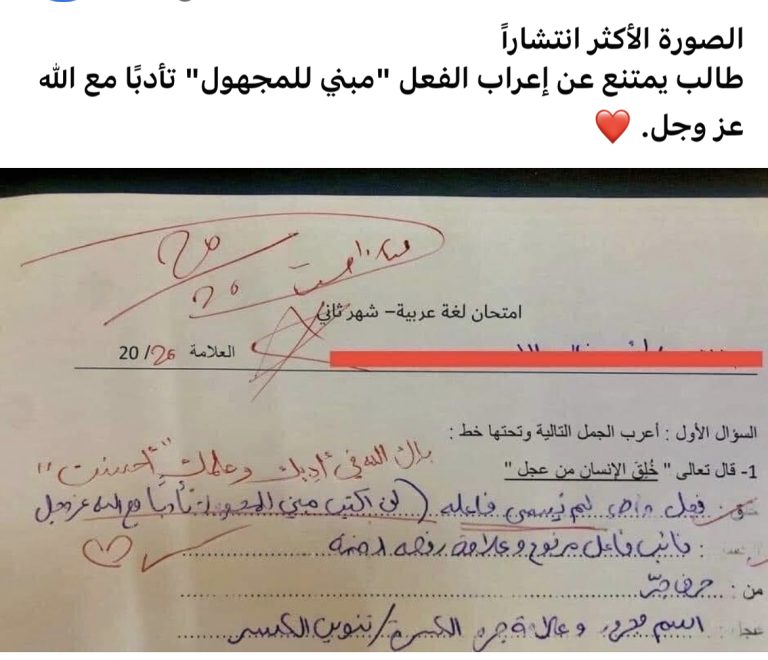 الصورة الأكثر انتشاراً
طالب يمتنع عن إعراب الفعل "مبني للمجهول" تأدبًا مع الله
عز وجل. ❤️
امتحان لغة عربية– شهر ثاني
العلامة 20/
السؤال الأول : أعرب الجمل التالية وتحتها خط :
بارك الله في أدبك وعلمك "أحسنت"
1- قال تعالى " خُلِقَ الإنسان من عجل "
فعل ماضٍ لم يُسمى فاعله (لن اكتب مبني للمجهول تأدبًا مع الله عز وجل
: نائب فاعل مرفوع وعلامة رفعه الضمة
من : حرف جرّ
عجل: اسم مجرور وعلامة جره الكسرة/تنوين الكسر